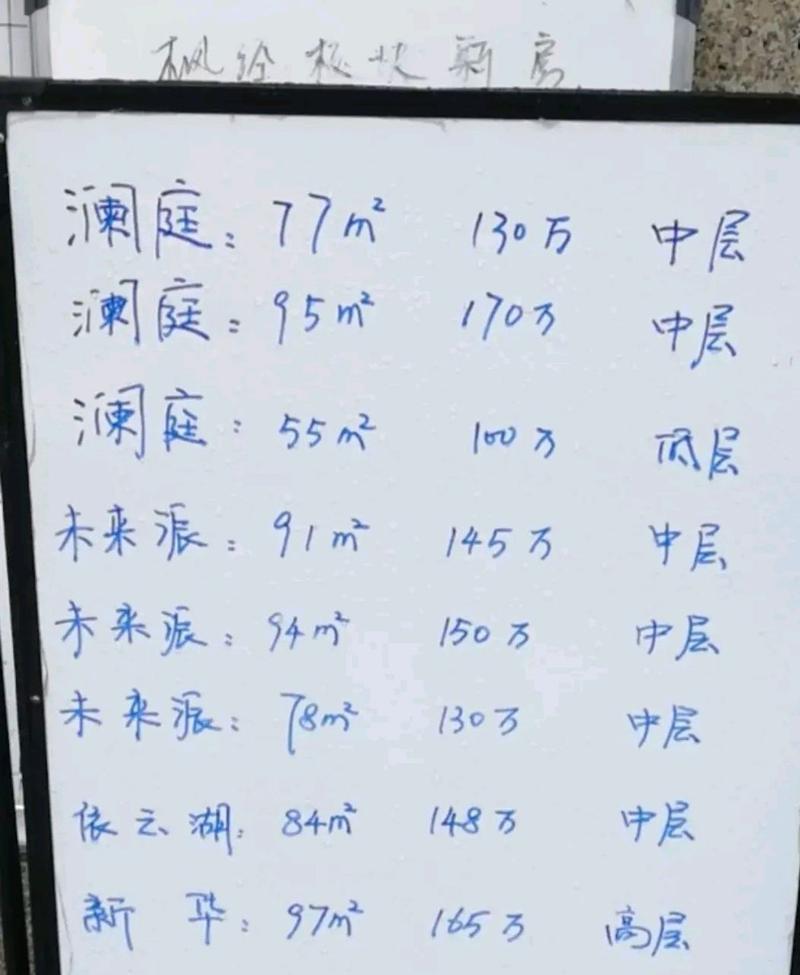 枫泾板块新房
澜庭: 77m² 130万 中层
澜庭: 95m² 170万 中层
澜庭: 55m² 100万 底层
未来派: 91m² 145万 中层
未来派: 94m² 150万 中层
未来派: 78m² 130万 中层
依云湖: 84m² 148万 中层
新华: 97m² 165万 高层